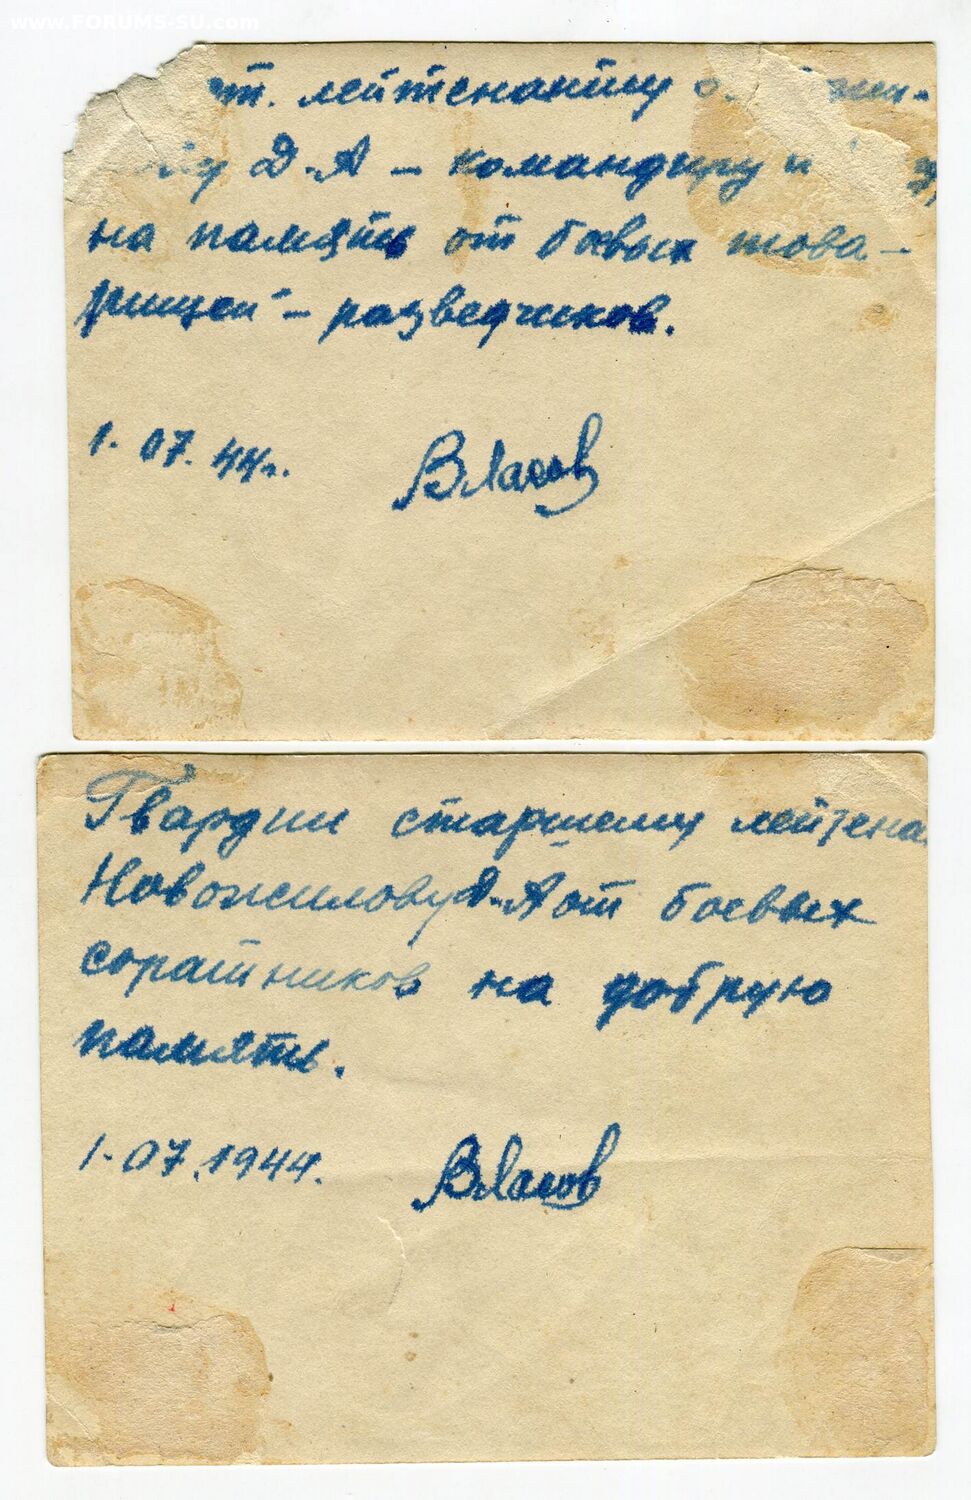 www.FORUMS-SU.com
ст. лейтенанту
Д.А – командиру и
на память от боевых това-
рищей – разведчиков.
1.07.44г.
Власов
Гвардии старшему лейтена
Новожилову Д.А от боевых
соратников на добрую
память.
1.07.1944.
Власов